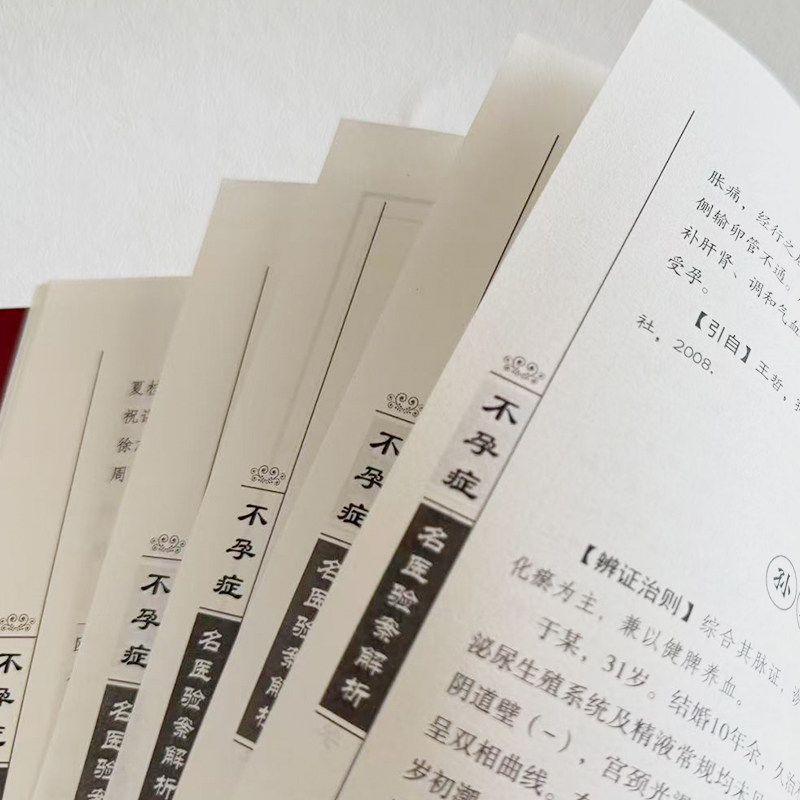 胀痛，经行之
侧输卵管不通。
补肝肾、调和气血
受孕。
【引自】王哲，
社，2008.
孙
【辨证治则】综合其脉证，
化瘀为主，兼以健脾养血。
于某，31岁。结婚10年余，久治
泌尿生殖系统及精液常规均未
阴道壁（－），宫颈光
呈双相曲线。
岁初潮
不孕症
名医验案解析
不孕症
名医验案解析
不孕症
名医验案解析
不孕症
名医验案
不孕症
夏桂
祝
徐
周